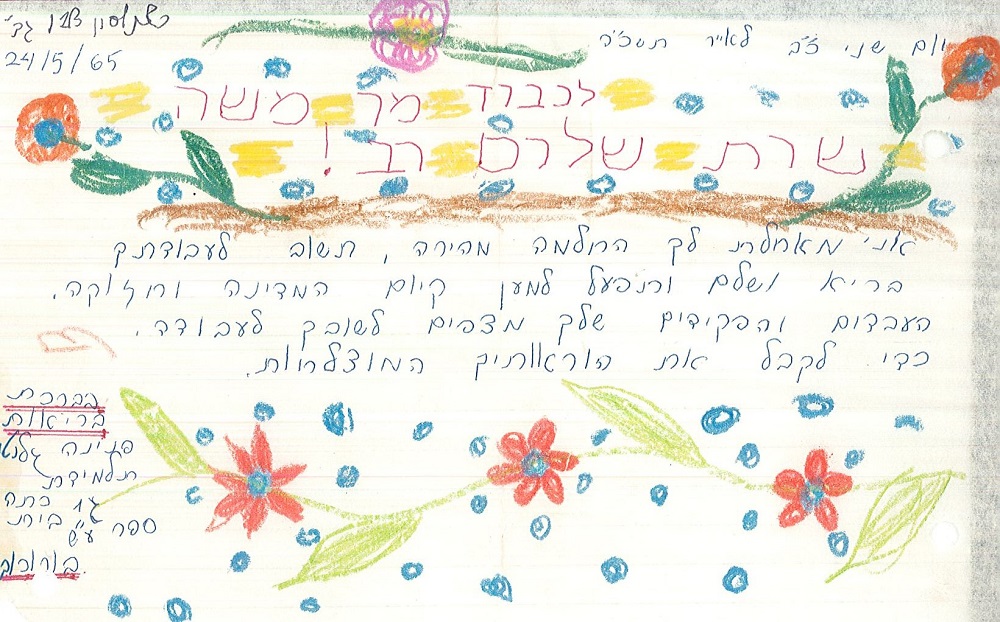 יום שני כ"ב לאייר תשכ"ה
24/5/65
לכבוד מר משה
שרת שלום רב!
אני מאחלת לך החלמה מהירה, תשוב לעבודתך
בריא ושלם ותפעל למען קיום המדינה וחזוקה.
העבדים והפקידים שלך מצפים לשובך לעבודה.
כדי לקבל את הוראותיך המוצלחות.
בברכת
בריאות
פנינה
תלמידת
כתה ג1
ספר בית
ע"ש
בורוכוב.